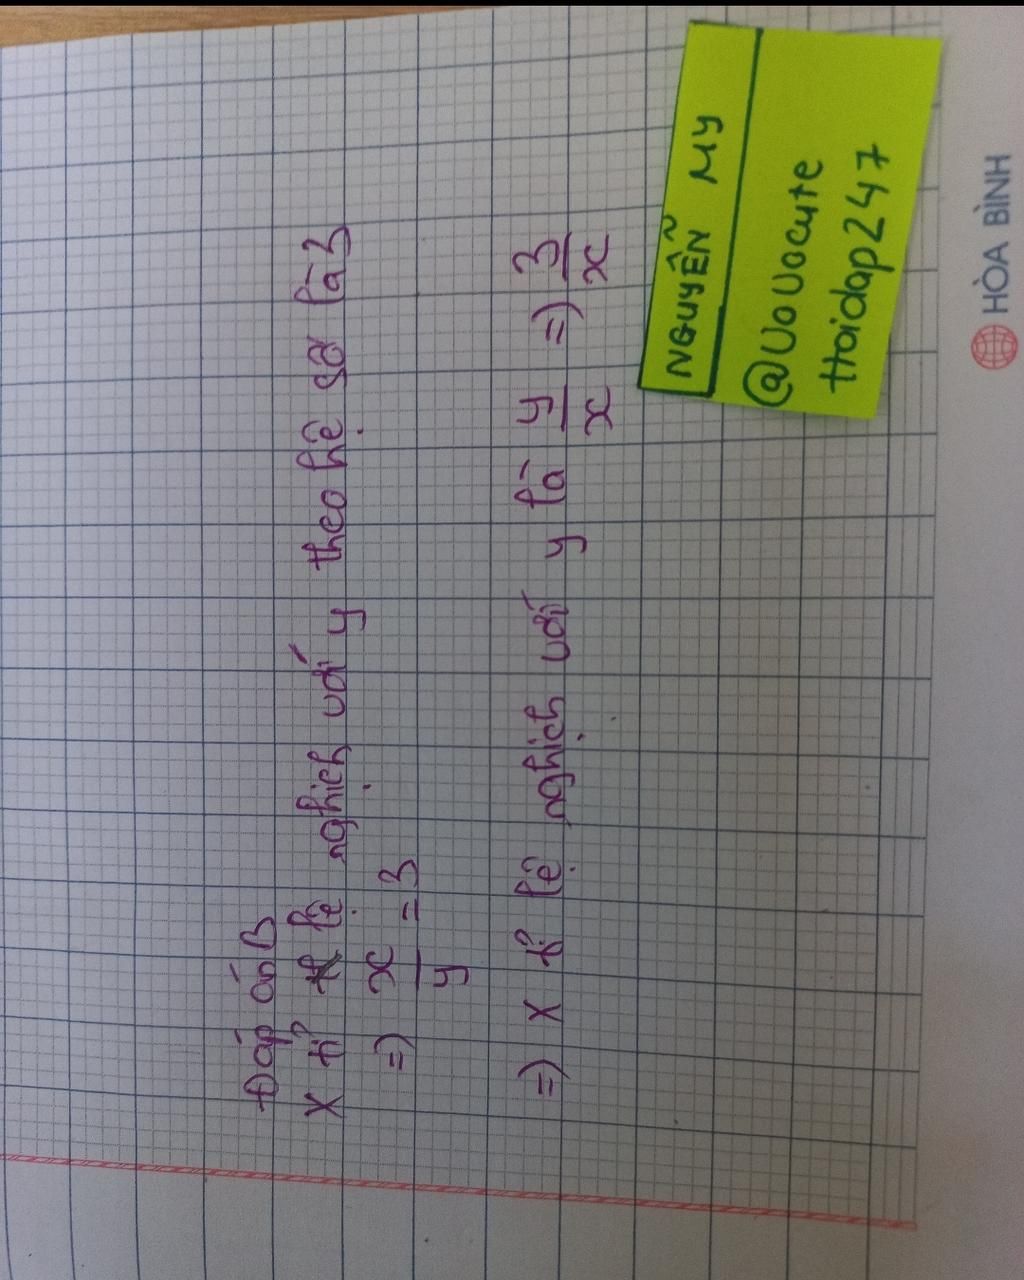 Đáp án B
x tỉ lệ nghịch với y theo hệ số là 3
=> x/y = 3
=> x tỉ lệ nghịch với y là y/x => 3/x
NGUYỄN MY
@UoUocute
Hoidap247
HÒA BÌNH